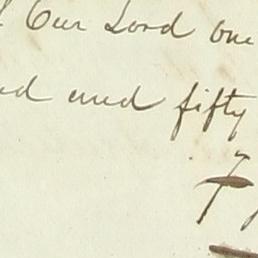 Our Lord one
ed and fifty